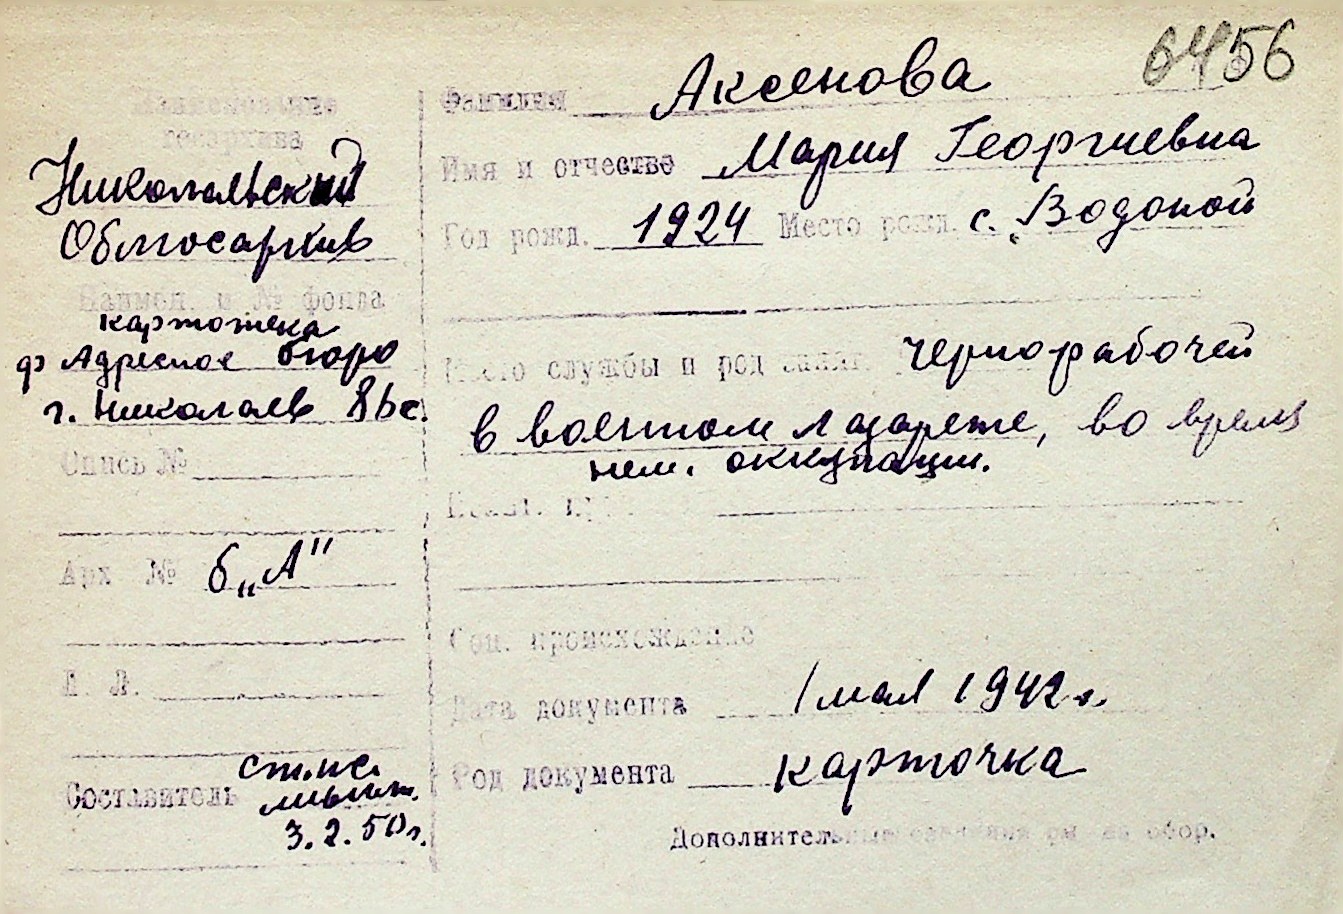 6456
Наименование
госархива
Николаевский
Облгосархив
Наимен. и № фонда
картотека
ф Адресное бюро
г. Николаев
Опись №
Арх №
б„А"
Составитель
3.2.50г.
Фамилия Аксенова
Имя и отчество Мария Георгиевна
Год рожд. 1924 Место рожд. с. Водопой
Место службы и род занят. чернорабочей
в военном лазарете, во время
нем. оккупации.
Соц. происхождение
Дата документа 1 мая 1942 г.
Род документа карточка
Дополнительные сведения см. на обор.